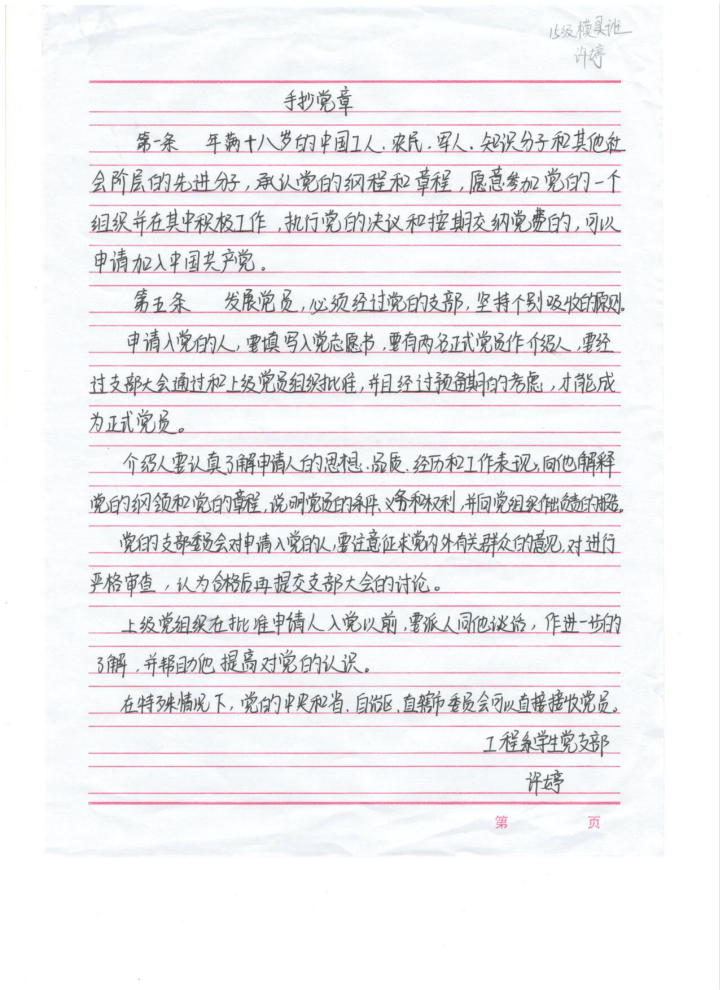 15级模具班
许婷
手抄党章
第一条 年满十八岁的中国工人、农民、军人、知识分子和其他社
会阶层的先进分子，承认党的纲程和章程，愿意参加党的一个
组织并在其中积极工作，执行党的决议和按期交纳党费的，可以
申请加入中国共产党。
第五条 发展党员，必须经过党的支部，坚持个别吸收的原则。
申请入党的人，要填写入党志愿书，要有两名正式党员作介绍人，要经
过支部大会通过和上级党员组织批准，并且经过预备期的考虑，才能成
为正式党员。
介绍人要认真了解申请人的思想、品质、经历和工作表现，向他解释
党的纲领和党的章程，说明党员的条件、义务和权利，并向党组织作出负责的报告。
党的支部委员会对申请入党的人，要注意征求党内外有关群众的意见，对进行
严格审查，认为合格后再提交支部大会的讨论。
上级党组织在批准申请人入党以前，要派人同他谈话，作进一步的
了解，并帮助他提高对党的认识。
在特殊情况下，党的中央和省、自治区、直辖市委员会可以直接接收党员。
工程系学生党支部
许婷
第 页